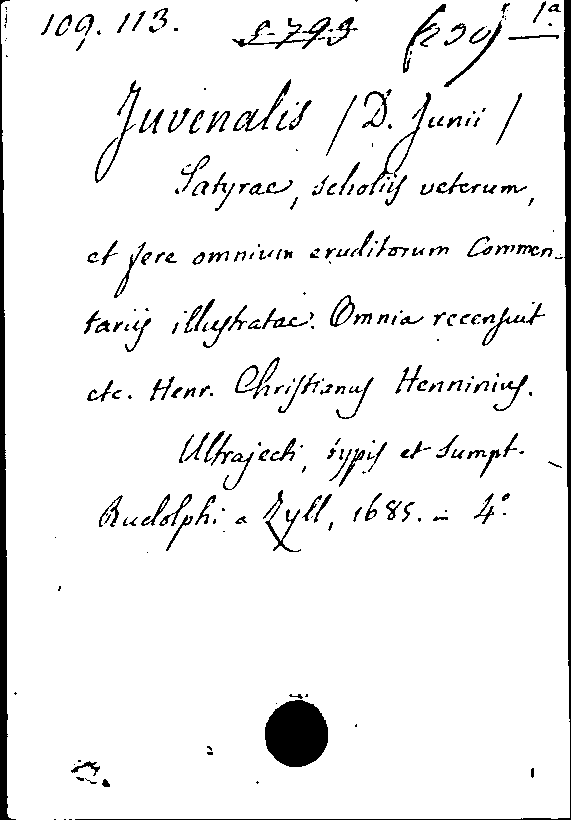 109.113. S 793 (230) 1ª
Juvenalis / D. Junii /
Satyrae, scholiis veterum,
et fere omnium eruditorum Commen-
tariis illustratae. Omnia recensuit
etc. Henr. Christianus Henninius.
Ultrajecti, typis et sumpt.
Rudolphi a Zyll, 1685. - 4°.